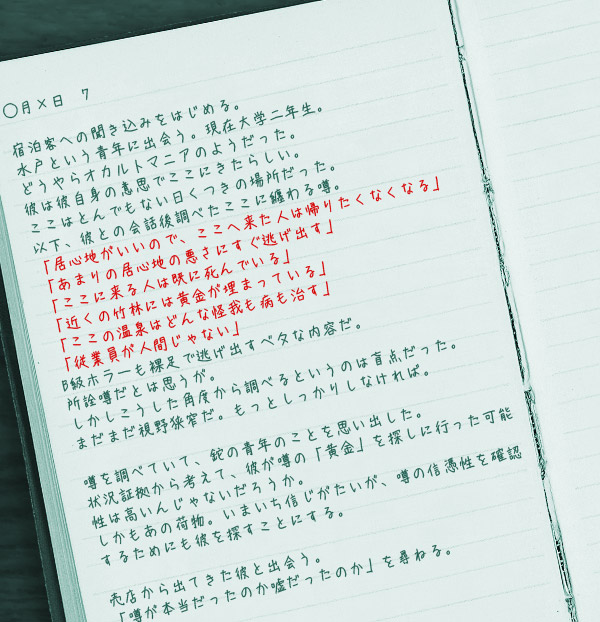 ○月×日　7
宿泊客への聞き込みをはじめる。
水戸という青年に出会う。現在大学二年生。
どうやらオカルトマニアのようだった。
彼は彼自身の意思でここにきたらしい。
ここはとんでもない曰くつきの場所だった。
以下、彼との会話後調べたここに纏わる噂。
「居心地がいいので、ここへ来た人は帰りたくなくなる」
「あまりの居心地の悪さにすぐ逃げ出す」
「ここに来る人は既に死んでいる」
「近くの竹林には黄金が埋まっている」
「ここの温泉はどんな怪我も病も治す」
「従業員が人間じゃない」
B級ホラーも裸足で逃げ出すベタな内容だ。
所詮噂だとは思うが。
しかしこうした角度から調べるというのは盲点だった。
まだまだ視野狭窄だ。もっとしっかりしなければ。
噂を調べていて、錠の青年のことを思い出した。
状況証拠から考えて、彼が噂の「黄金」を探しに行った可能
性は高いんじゃないだろうか。
しかもあの荷物。いまいち信じがたいが、噂の信憑性を確認
するためにも彼を探すことにする。
売店から出てきた彼と出会う。
「噂が本当だったのか嘘だったのか」を尋ねる。